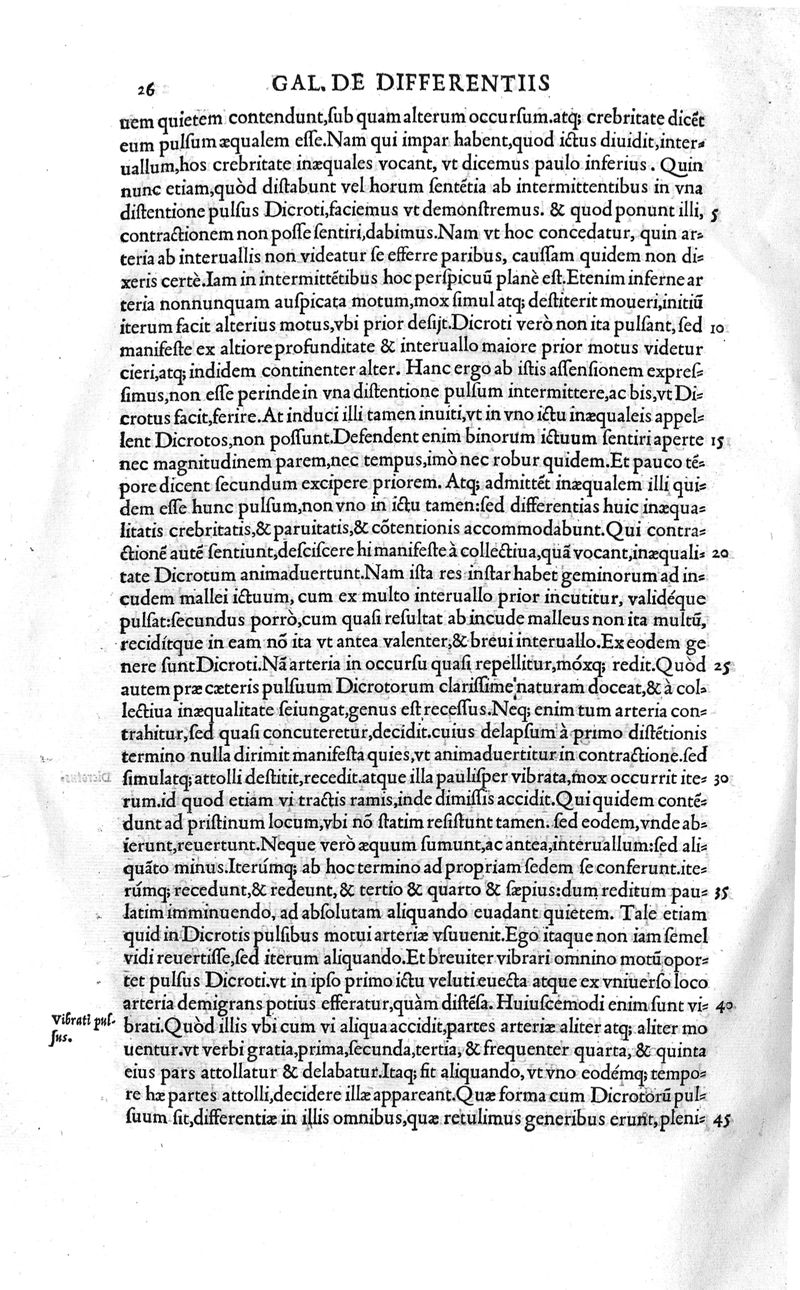 26 GAL. DE DIFFERENTIIS
nem quietem contendunt,ſub quam alterum occurſum.atq; crebritate dicẽt
eum pulſum æqualem eſſe.Nam qui impar habent,quod ictus diuidit,inter-
uallum,hos crebritate inæquales vocant, vt dicemus paulo inferius . Quin
nunc etiam,quòd diſtabunt vel horum ſentẽtia ab intermittentibus in vna
diſtentione pulſus Dicroti,faciemus vt demonſtremus. & quod ponunt illi, 5
contractionem non poſſe ſentiri,dabimus.Nam vt hoc concedatur, quin ar-
teria ab interuallis non videatur ſe efferre paribus, cauſſam quidem non di-
xeris certè.Iam in intermittẽtibus hoc perſpicuũ planè eſt.Etenim inferne ar
teria nonnunquam auſpicata motum,mox ſimul atq; deſtiterit moueri,initiũ
iterum facit alterius motus,vbi prior deſijt.Dicroti verò non ita pulſant, ſed 10
manifeſte ex altiore profunditate & interuallo maiore prior motus videtur
cieri,atq; indidem continenter alter. Hanc ergo ab iſtis aſſenſionem expreſ-
ſimus,non eſſe perinde in vna diſtentione pulſum intermittere,ac bis,vt Di-
crotus facit,ferire.At induci illi tamen inuiti,vt in vno ictu inæqualeis appel-
lent Dicrotos,non poſſunt.Defendent enim binorum ictuum ſentiri aperte 15
nec magnitudinem parem,nec tempus,imò nec robur quidem.Et pauco tẽ-
pore dicent ſecundum excipere priorem. Atq; admittẽt inæqualem illi qui-
dem eſſe hunc pulſum,non vno in ictu tamen:ſed differentias huic inæqua-
litatis crebritatis,& paruitatis,& cõtentionis accommodabunt.Qui contra-
ctionẽ autẽ ſentiunt,deſciſcere hi manifeſte à collectiua,quã vocant,inæquali- 20
tate Dicrotum animaduertunt.Nam iſta res inſtar habet geminorum ad in-
cudem mallei ictuum, cum ex multo interuallo prior incutitur, validéque
pulſat:ſecundus porrò,cum quaſi reſultat ab incude malleus non ita multũ,
recidítque in eam nõ ita vt antea valenter,& breui interuallo.Ex eodem ge
nere ſunt Dicroti.Nã arteria in occurſu quaſi repellitur,móxq; redit.Quòd 25
autem præ cæteris pulſuum Dicrotorum clariſſime naturam doceat,& à col-
lectiua inæqualitate ſeiungat,genus eſt receſſus.Neq; enim tum arteria con-
trahitur,ſed quaſi concuteretur,decidit.cuius delapſum à primo diſtẽtionis
termino nulla dirimit manifeſta quies,vt animaduertitur in contractione.ſed
ſimulatq; attolli deſtitit,recedit.atque illa pauliſper vibrata,mox occurrit ite- 30
rum.id quod etiam vi tractis ramis,inde dimiſſis accidit.Qui quidem contẽ-
dunt ad priſtinum locum,vbi nõ ſtatim reſiſtunt tamen. ſed eodem,vnde ab-
ierunt,reuertunt.Neque verò æquum ſumunt,ac antea,interuallum:ſed ali-
quãto minus.Iterúmq; ab hoc termino ad propriam ſedem ſe conferunt.ite-
rúmq; recedunt,& redeunt,& tertio & quarto & ſæpius:dum reditum pau- 35
latim imminuendo, ad abſolutam aliquando euadant quietem. Tale etiam
quid in Dicrotis pulſibus motui arteriæ vſuuenit.Ego itaque non iam ſemel
vidi reuertiſſe,ſed iterum aliquando.Et breuiter vibrari omnino motũ opor-
tet pulſus Dicroti.vt in ipſo primo ictu veluti euecta atque ex vniuerſo loco
arteria demigrans potius efferatur,quàm diſtẽſa.Huiuſcemodi enim ſunt vi- 40
Vibrati pul-
ſus.
brati.Quòd illis vbi cum vi aliqua accidit,partes arteriæ aliter atq; aliter mo
uentur.vt verbi gratia,prima,ſecunda,tertia, & frequenter quarta, & quinta
eius pars attollatur & delabatur.Itaq; fit aliquando,vt vno eodémq; tempo-
re hæ partes attolli,decidere illæ appareant.Quæ forma cum Dicrotorũ pul-
ſuum ſit,differentiæ in illis omnibus,quæ retulimus generibus erunt,pleni- 45